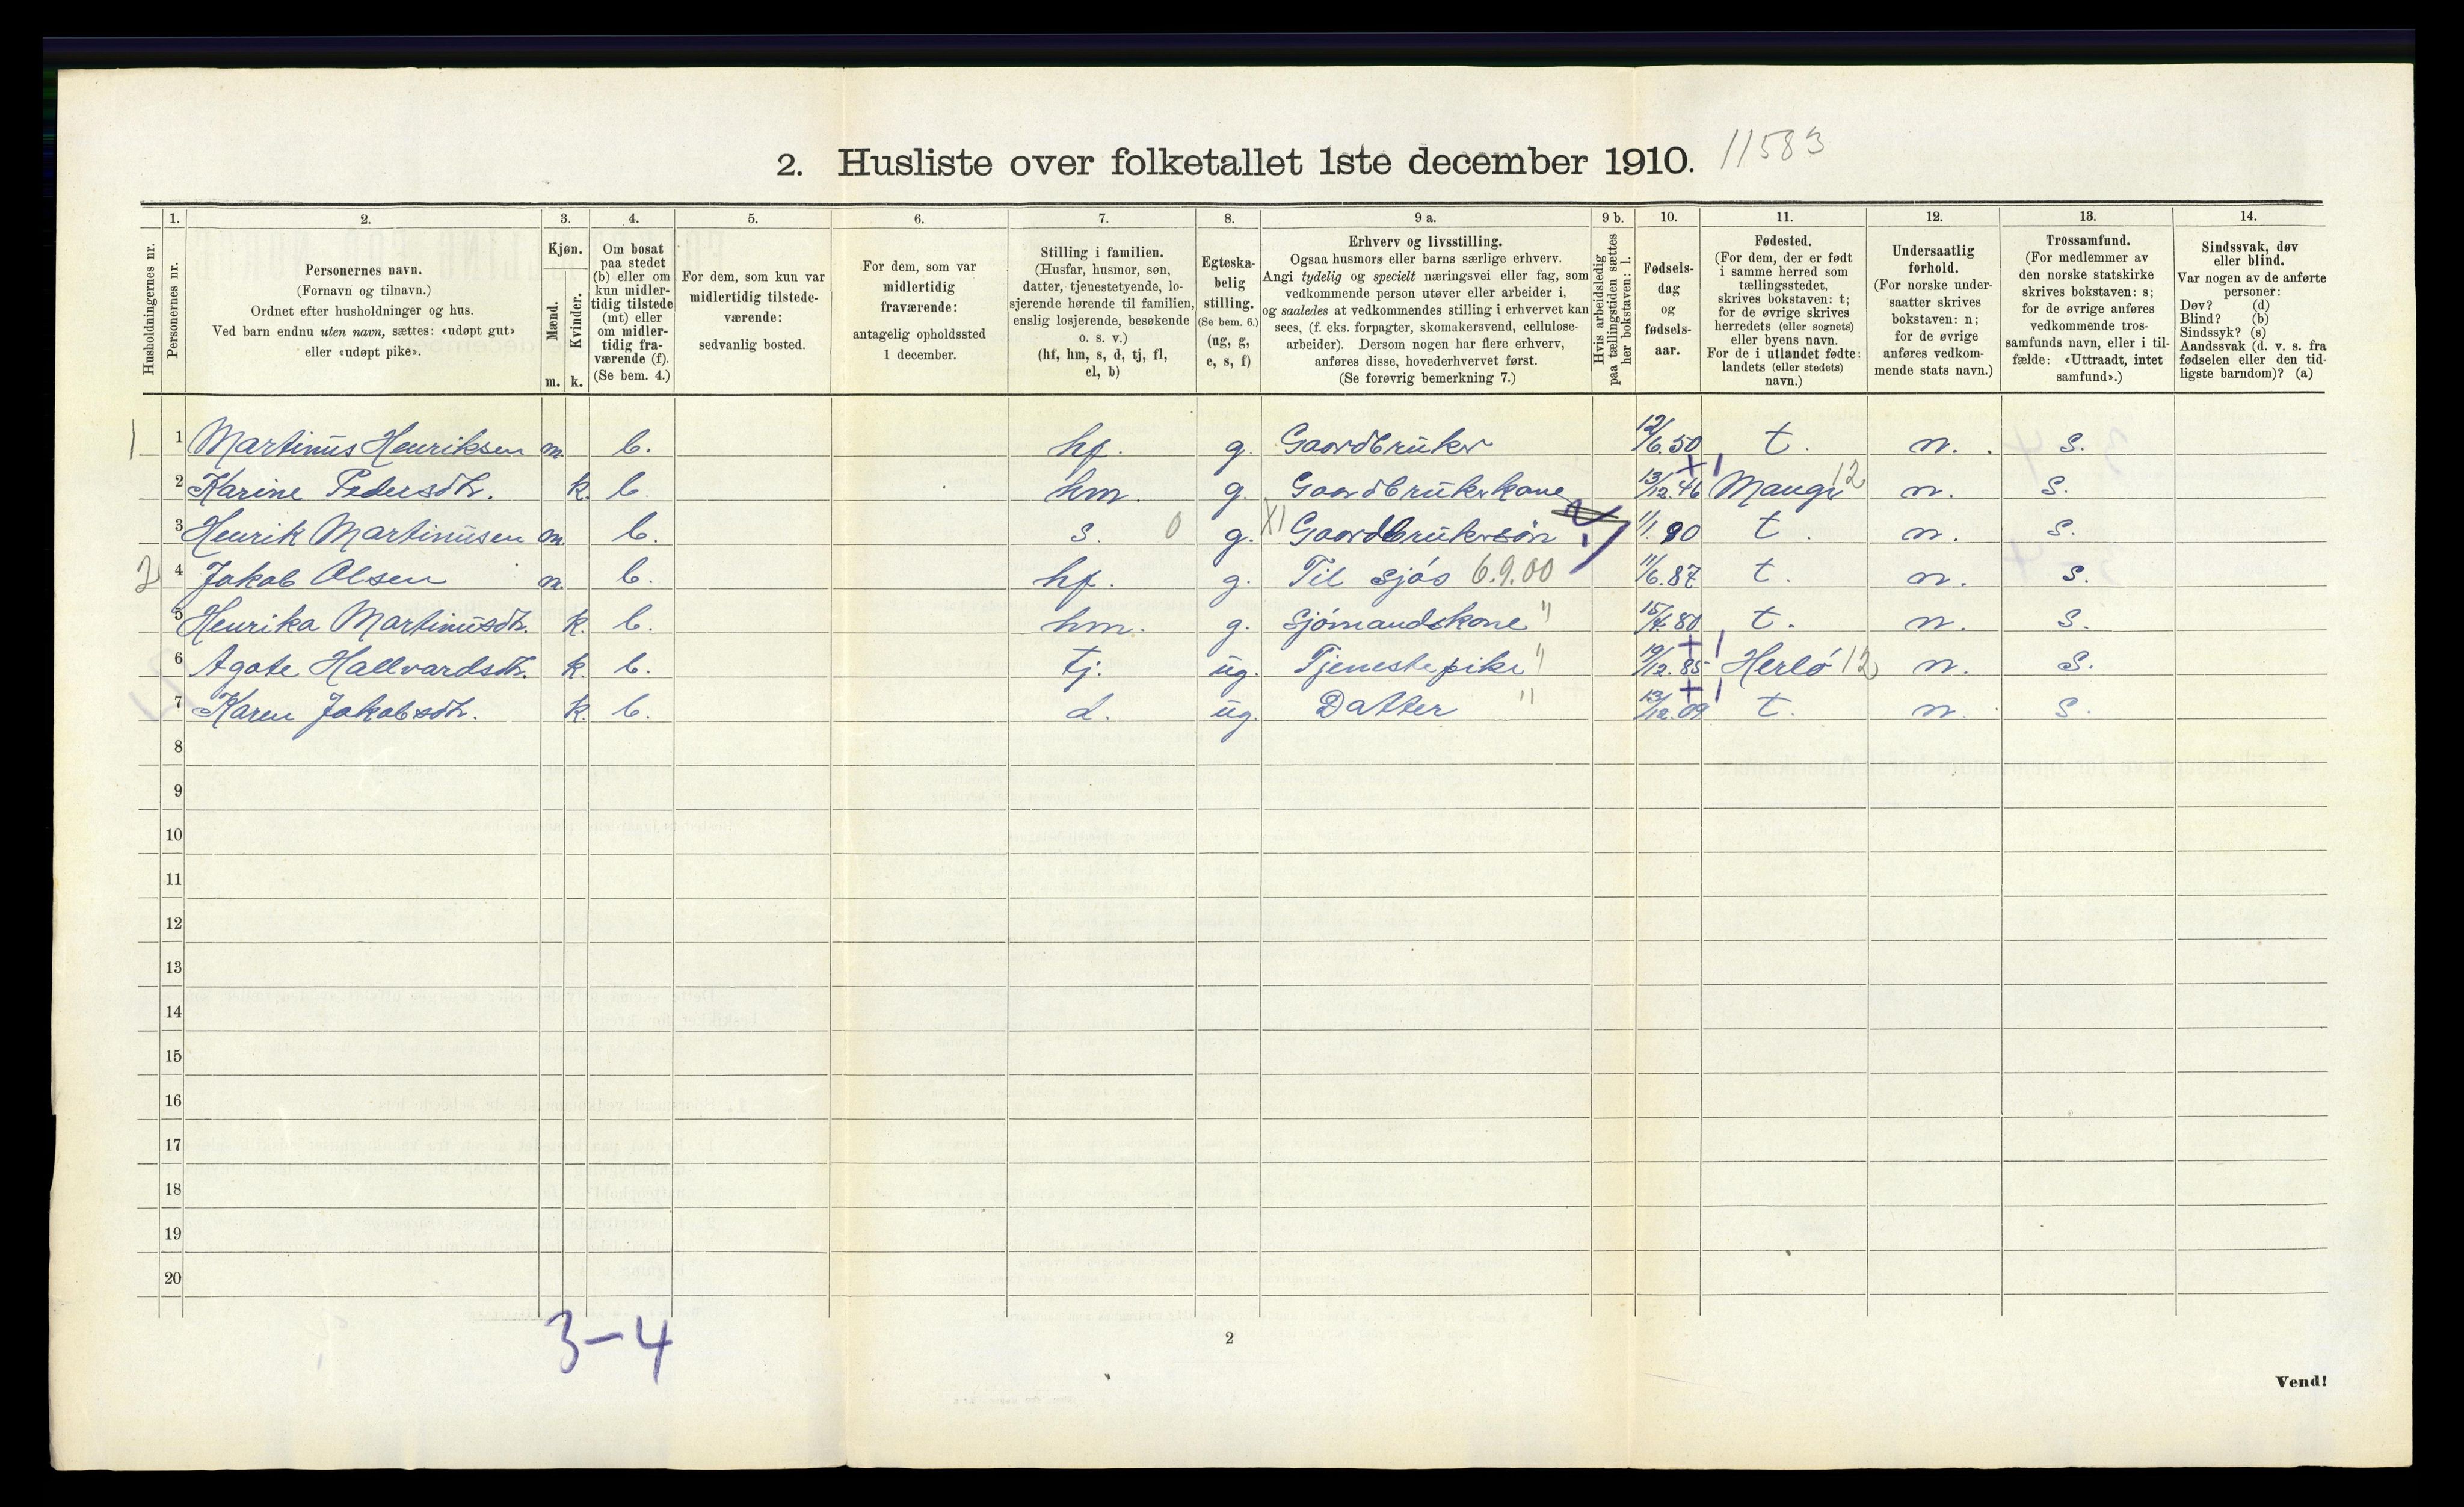 2. Husliste over folketallet 1ste december 1910. 11583
Husholdningernes nr.
1.
Personernes nr.
2.
Personernes navn.
(Fornavn og tilnavn.)
Ordnet efter husholdninger og hus.
Ved barn endnu uten navn, sættes: «udøpt gut»
eller «udøpt pike».
3.
Kjøn.
Mænd.
Kvinder.
m. k.
4.
Om bosat
paa stedet
(b) eller om
kun midler-
tidig tilstede
(mt) eller
om midler-
tidig fra-
værende (f).
(Se bem. 4.)
5.
For dem, som kun var
midlertidig tilstede-
værende:
sedvanlig bosted.
6.
For dem, som var
midlertidig
fraværende:
antagelig opholdssted
1 december.
7.
Stilling i familien.
(Husfar, husmor, søn,
datter, tjenestetyende, lo-
sjerende hørende til familien,
enslig losjerende, besøkende
o. s. v.)
(hf, hm, s, d, tj, fl,
el, b)
8.
Egteska-
belig
stilling.
(Se bem. 6.)
(ug, g,
e, s, f)
9 a.
Erhverv og livsstilling.
Ogsaa husmors eller barns særlige erhverv.
Angi tydelig og specielt næringsvei eller fag, som
vedkommende person utøver eller arbeider i,
og saaledes at vedkommendes stilling i erhvervet kan
sees, (f. eks. forpagter, skomakersvend, cellulose-
arbeider). Dersom nogen har flere erhverv,
anføres disse, hovederhvervet først.
(Se forøvrig bemerkning 7.)
9 b.
Hvis arbeidsledig
paa tællingstiden sættes
her bokstaven: l.
10.
Fødsels-
dag
og
fødsels-
aar.
11.
Fødested.
(For dem, der er født
i samme herred som
tællingsstedet,
skrives bokstaven: t;
for de øvrige skrives
herredets (eller sognets)
eller byens navn.
For de i utlandet fødte:
landets (eller stedets)
navn.)
12.
Undersaatlig
forhold.
(For norske under-
saatter skrives
bokstaven: n;
for de øvrige
anføres vedkom-
mende stats navn.)
13.
Trossamfund.
(For medlemmer av
den norske statskirke
skrives bokstaven: s;
for de øvrige anføres
vedkommende tros-
samfunds navn, eller i til-
fælde: «Uttraadt, intet
samfund».)
14.
Sindssvak, døv
eller blind.
Var nogen av de anførte
personer:
Døv? (d)
Blind? (b)
Sindssyk? (s)
Aandssvak (d. v. s. fra
fødselen eller den tid-
ligste barndom)? (a)
1 1 Martinus Henriksen m. b. hf. g. Gaardbruker 12/6.50 t. n. s.
2 Karine Pedersdtr. k. b. hm. g. Gaardbrukerkone 13/12.46 Manger 12 n. s.
3 Henrik Martinusen m. b. s. 0 g. X1 Gaardbrukersøn 1/1.90 t. n. s.
2 4 Jakob Olsen m. b. hf. g. Til sjøs 6.9.00 11/6.87 t. n. s.
5 Henrika Martinusdtr. k. b. hm. g. Sjømandskone " 15/4.80 t. n. s.
6 Agate Hallvardsdtr. k. b. tj. ug. Tjenestepike " 19/12.85 Herlø 12 n. s.
7 Karen Jakobsdtr. k. b. d. ug. Datter " 13/12.09 t. n. s.
8
9
10
11
12
13
14
15
16
17
18
19
20
3-4
2
Vend!